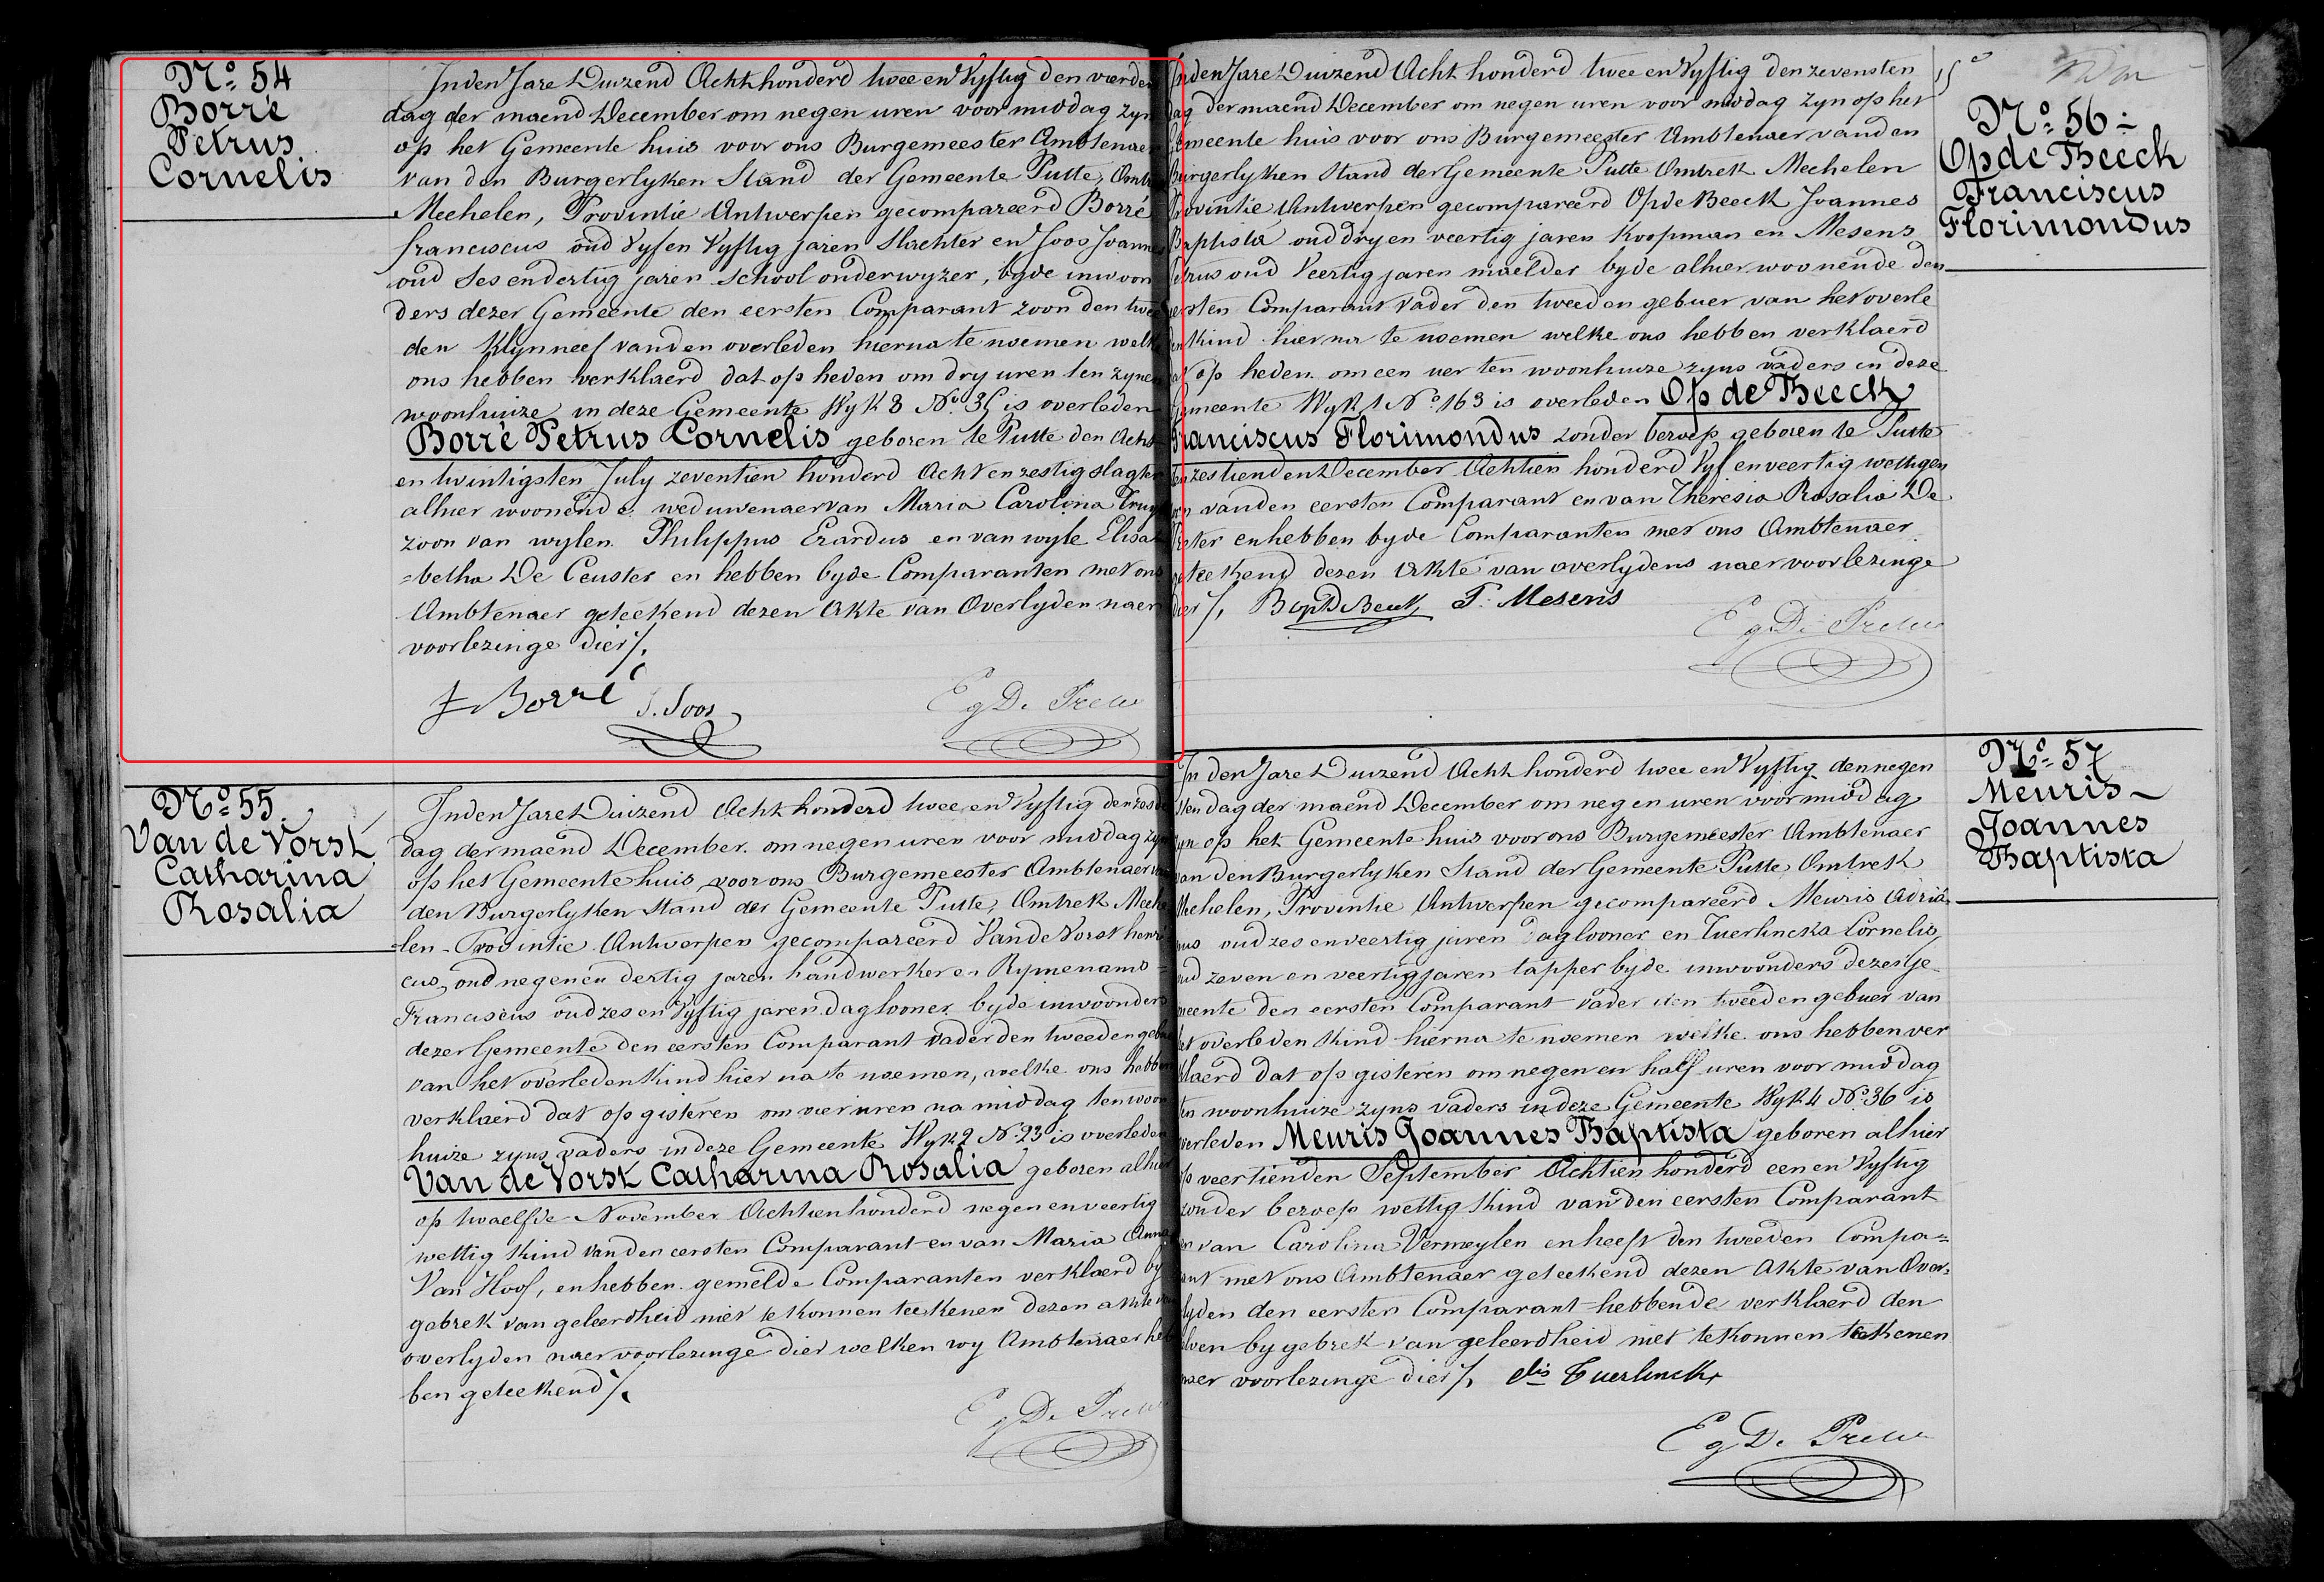 No 54
Borré
Petrus
Cornelis
In den Jare Duizend Acht honderd twee en Vyftig den vierden
dag der maend December om negen uren voor middag zyn
op het Gemeente huis voor ons Burgemeester Ambtenaer
van den Burgerlyken Stand der Gemeente Putte, Omtr
Mechelen, Provintie Antwerpen gecompareerd Borré
franciscus oud Vyf en Vyftig jaren Slachter en Joos Joannes
oud Ses en dertig jaren School onderwyzer, byde inwoon
ders dezer Gemeente den eersten Comparant zoon den twee
den Klynneef van den overleden hierna te noemen welke
ons hebben verklaerd dat op heden om dry uren ten zynen
woonhuize in deze Gemeente Wyk 8 No 35 is overleden
Borré Petrus Cornelis geboren te Putte den Acht
en twintigsten July zeventien honderd Acht en zestig slagter
alhier woonende weduwenaer van Maria Carolina
zoon van wylen Philippus Erardus en van wyle Elisa
=betha De Ceuster en hebben byde Comparanten met ons
Ambtenaer geteekend dezen Akte van Overlyden naer
voorlezinge dier /.
F Borré J. Joos Eg D.
No 55
Van de Vorst
Catharina
Rosalia
In den Jare Duizend Acht honderd twee en Vyftig den zesde
dag der maend December om negen uren voor middag zyn
op het Gemeente huis voor ons Burgemeester Ambtenaer van
den Burgerlyken Stand der Gemeente Putte, Omtrek Meche
len Provintie Antwerpen gecompareerd Van de Vorst henri
cus, oud negen en dertig jaren handwerker en Rymenams =
Franciscus oud zes en Vyftig jaren daglooner byde inwoonders
dezer Gemeente den eersten Comparant Vader den tweeden gebuer
van het overleden Kind hier na te noemen, welke ons hebben
verklaerd dat op gisteren om vier uren na middag ten woon
huize zyns vaders in deze Gemeente Wyk 2 No 23 is overleden
Van de Vorst Catharina Rosalia geboren alhier
op twaelfde November Achtien honderd negen en veertig
wettig Kind van den eersten Comparant en van Maria Anna
Van Hoof, en hebben gemelde Comparanten verklaerd by
gebrek van geleerdheid niet te konnen teekenen dezen akte van
overlyden naer voorlezinge dier welken wy Ambtenaer heb
ben geteekend /.
Eg D.
No 56
Op de Beeck
Franciscus
Florimondus
In den Jare Duizend Acht honderd twee en Vyftig den zevensten
dag der maend December om negen uren voor middag zyn op het
Gemeente huis voor ons Burgemeester Ambtenaer van den
Burgerlyken Stand der Gemeente Putte Omtrek Mechelen
Provintie Antwerpen gecompareerd Op de Beeck Joannes
Baptista oud dry en veertig jaren Koopman en Mesens
Petrus oud Veertig jaren maelder byde alhier woonende den
eersten Comparant Vader den tweeden gebuer van het overle
den Kind hierna te noemen welke ons hebben verklaerd
dat op heden om een uer ten woonhuize zyns vaders in deze
Gemeente Wyk 1 No 163 is overleden Op de Beeck
Franciscus Florimondus zonder beroep geboren te Putte
den zestienden December Achtien honderd Vyf en veertig wettigen
zoon van den eersten Comparant en van Theresia Rosalia De
Preter en hebben byde Comparanten met ons Ambtenaer
geteekend dezen Akte van overlydens naer voorlezinge
dier /. B Op De Beeck P. Mesens
Eg D.
No 57
Meuris
Joannes
Baptista
In den Jare Duizend Acht honderd twee en Vyftig den negen
sten dag der maend December om negen uren voor middag
zyn op het Gemeente huis voor ons Burgemeester Ambtenaer
van den Burgerlyken Stand der Gemeente Putte, Omtrek
Mechelen, Provintie Antwerpen gecompareerd Meuris Adria
nus oud zes en veertig jaren Daglooner en Tuerlinckx Cornelis
oud zeven en veertig jaren tapper byde inwoonders dezer Ge
meente den eersten Comparant Vader den tweeden gebuer van
het overleden Kind hierna te noemen welke ons hebben ver
klaerd dat op gisteren om negen en half uren voor middag
ten woonhuize zyns vaders in deze Gemeente Wyk 4 No 36 is
overleden Meuris Joannes Baptista geboren alhier
op veertienden September Achtien honderd een en Vyftig
zonder beroep wettig Kind van den eersten Comparant
en van Carolina Vermeylen en heeft den tweeden Compa=
rant met ons Ambtenaer geteekend dezen Akte van Over=
lyden den eersten Comparant hebbende verklaerd den
zelven by gebrek van geleerdheid niet te konnen teekenen
naer voorlezinge dier /. Clis Tuerlinckx
Eg D.